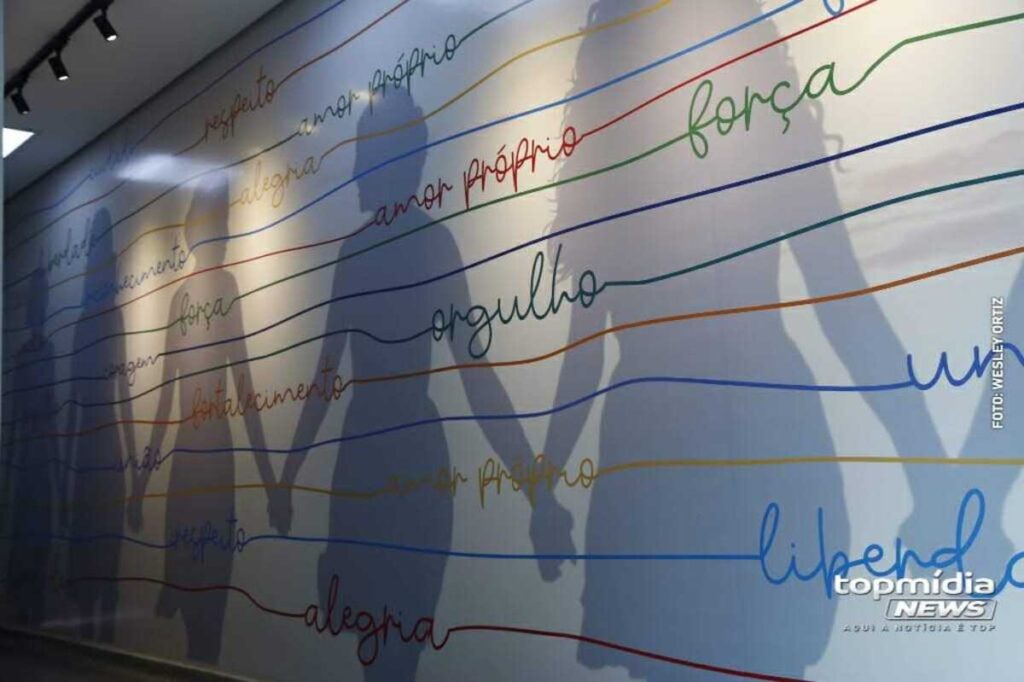 respeito amor próprio
alegria
amor próprio força
reconhecimento
força orgulho
coragem
fortalecimento un
união
amor próprio
respeito liberda
alegria
FOTO: WESLEY ORTIZ
topmídia
NEWS
AQUI A NOTÍCIA É TOP